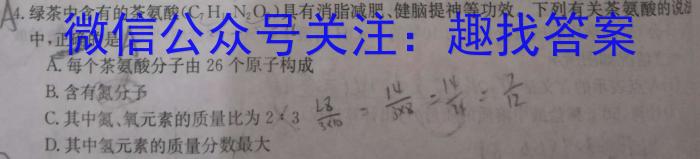 4.绿茶中含有的茶氨酸(C₇H N₂O₃)具有消脂减肥、健脑提神等功效。下列有关茶氨酸的说法
微信公众号关注：趣找答案
中，正确的是
A.每个茶氨酸分子由 26 个原子构成
B.含有氮分子
C.其中氮、氧元素的质量比为 2:3
D.其中氢元素的质量分数最大
= 14/3×8 = 14/24 = 7/12